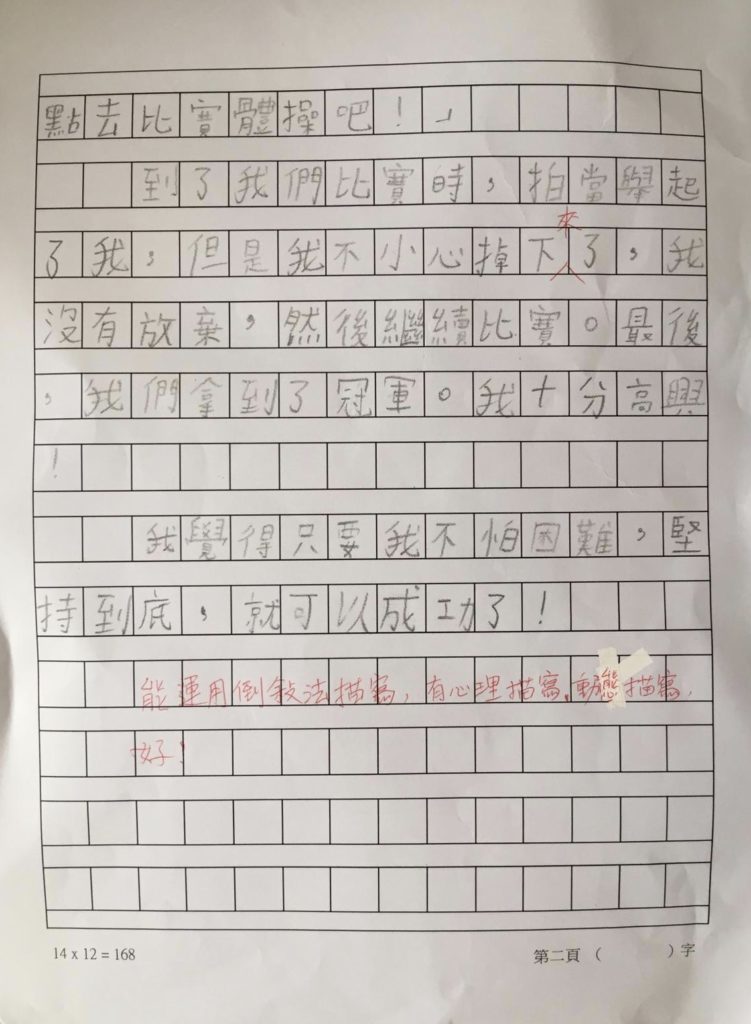 點去比賽體操吧！」
到了我們比賽時，拍當舉起
來
了我，但是我不小心掉下了，我
沒有放棄，然後繼續比賽。最後
，我們拿到了冠軍。我十分高興
！
我覺得只要我不怕困難，堅
持到底，就可以成功了！
能運用倒敍法描寫，有心理描寫、動態描寫，
好！
14 x 12 = 168
第二頁（　　　）字